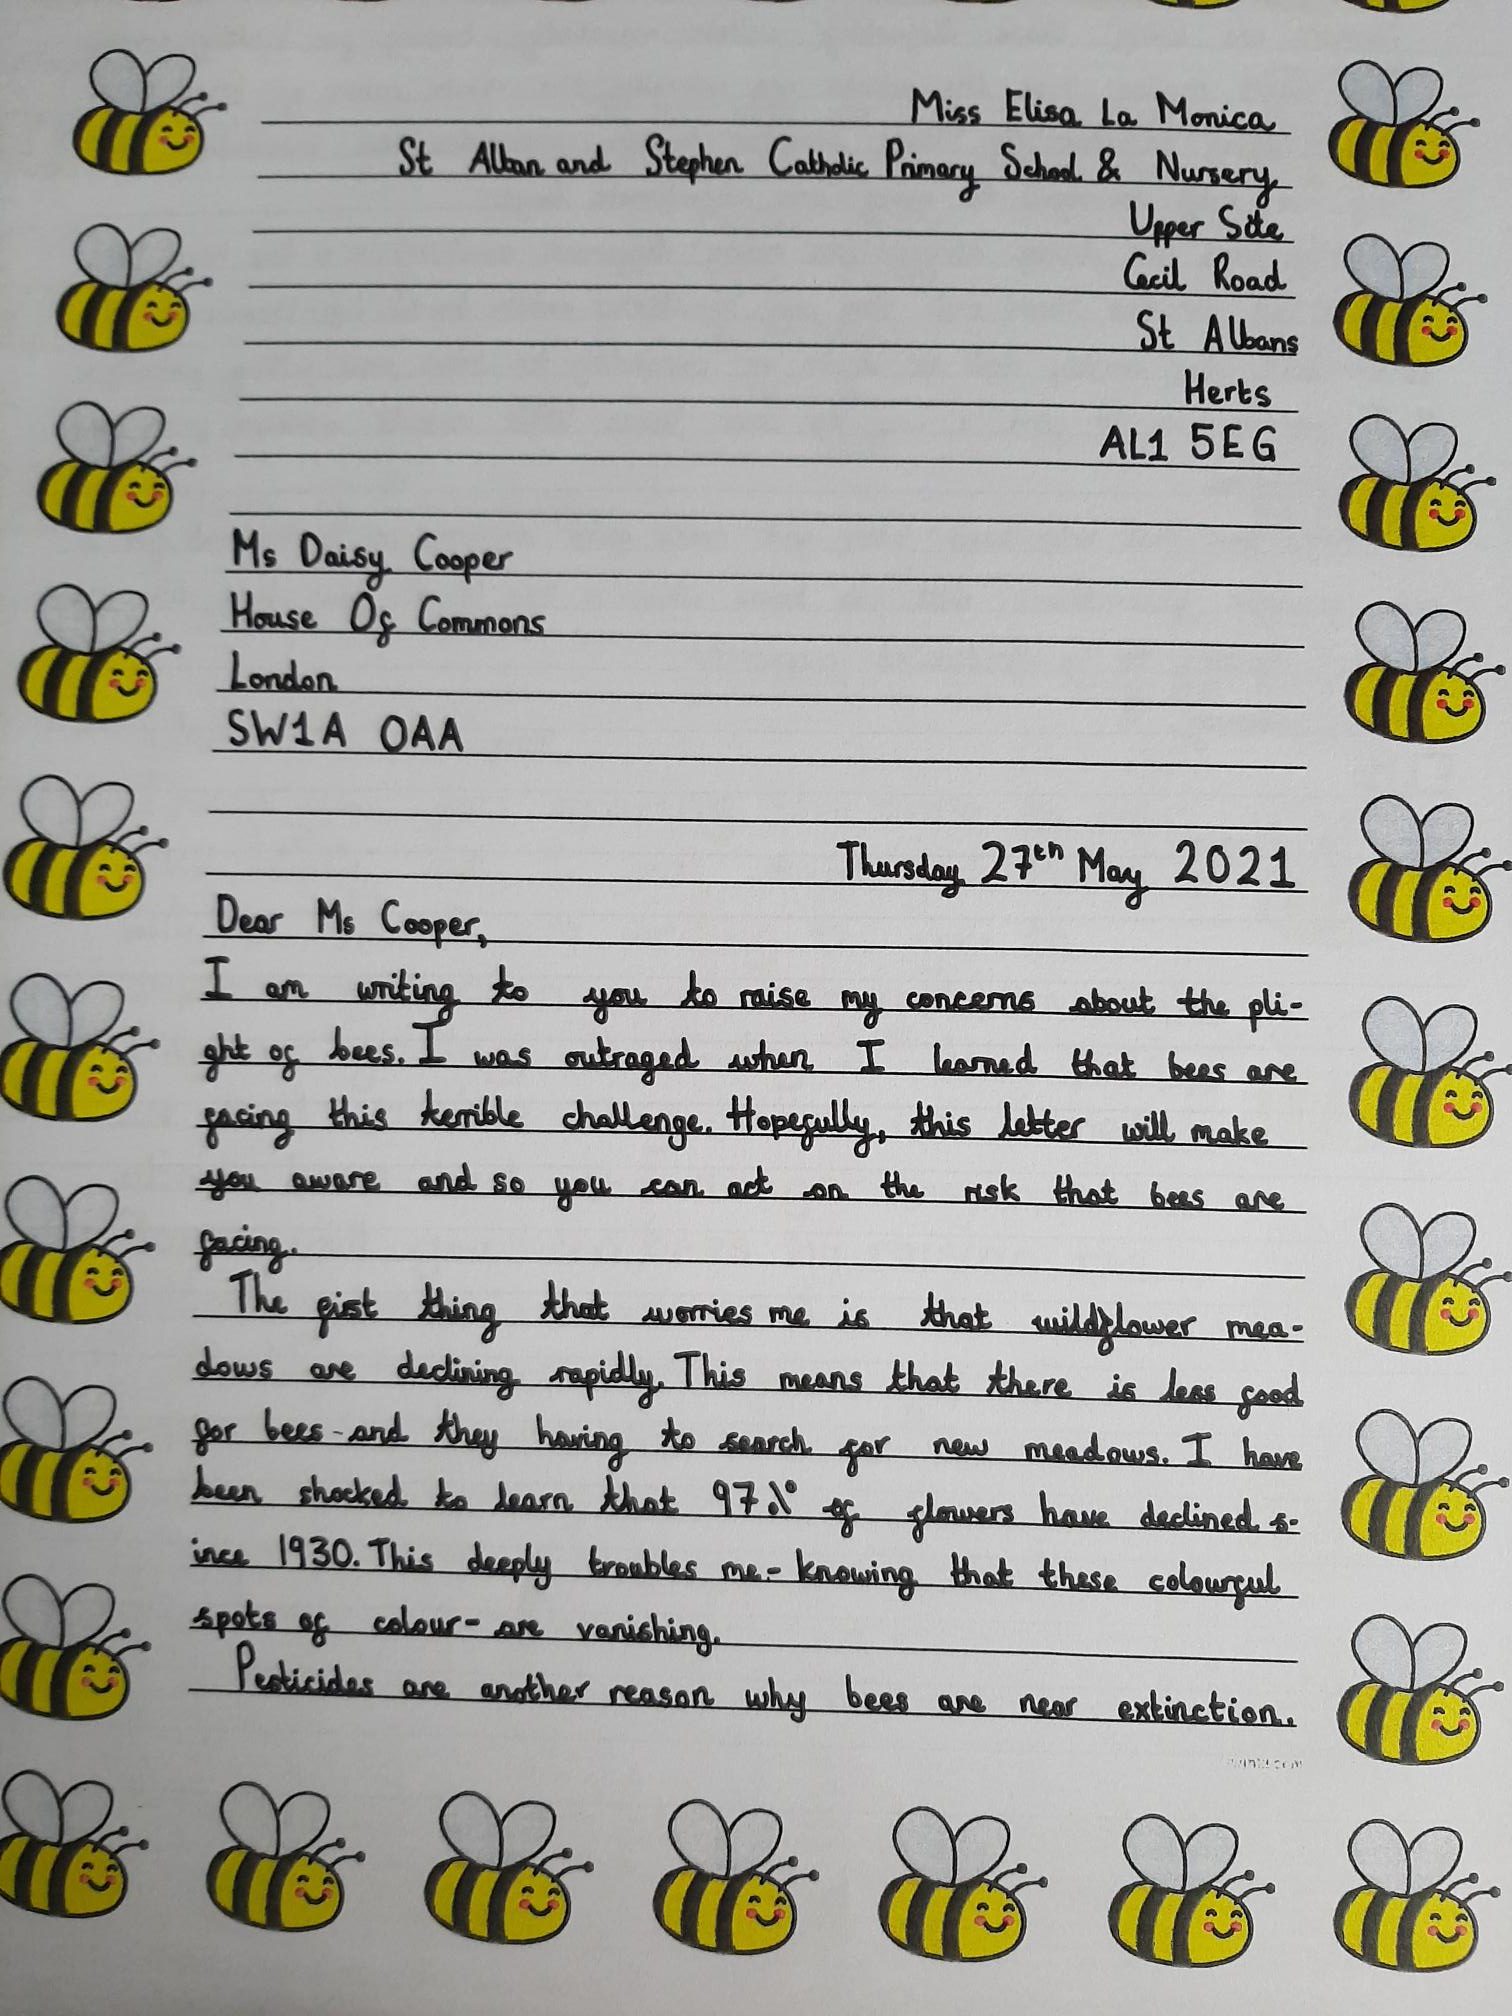 Miss Elisa La Monica
St Alban and Stephen Catholic Primary School & Nursery
Upper Site
Cecil Road
St Albans
Herts
AL1 5EG
Ms Daisy Cooper
House Of Commons
London
SW1A 0AA
Thursday 27th May 2021
Dear Ms Cooper,
I am writing to you to raise my concerns about the pli-
ght of bees. I was outraged when I learned that bees are
facing this terrible challenge. Hopefully, this letter will make
you aware and so you can act on the risk that bees are
facing.
The first thing that worries me is that wildflower mea-
dows are declining rapidly. This means that there is less food
for bees - and they having to search for new meadows. I have
been shocked to learn that 97% of flowers have declined s-
ince 1930. This deeply troubles me - knowing that these colourful
spots of colour - are vanishing.
Pesticides are another reason why bees are near extinction.